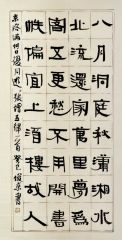 八月洞庭秋瀟湘水
北流還家萬里夢為
客五更愁不用開書
帙偏宜上酒樓故人
京洛滿何日復同遊 張謂五律一首 癸巳 書